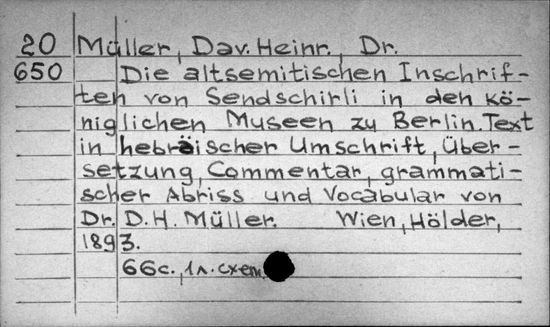 20 Müller, Dav. Heinr., Dr.
650 Die altsemitischen Inschrif-
ten von Sendschirli in den kö-
niglichen Museen zu Berlin. Text
in hebräischer Umschrift, Über-
setzung, Commentar, grammati-
scher Abriss und Vocabular von
Dr. D. H. Müller. Wien, Hölder,
1893.
66c., 1л. схем